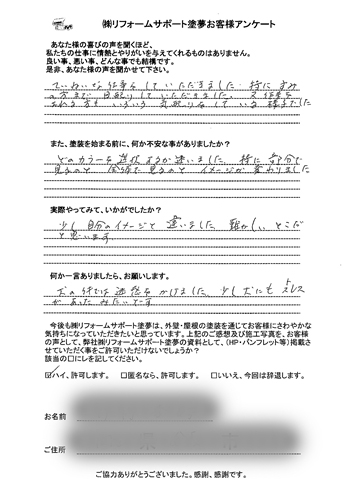 ㈱リフォームサポート塗夢お客様アンケート
あなた様の喜びの声を聞くほど、
私たちの仕事に情熱とやりがいを与えてくれるものはありません。
良い事、悪い事、どんな事でも結構です。
是非、あなた様の声を聞かせて下さい。
ていねいな仕事をしていただきました 特にすみ
の方まで 目配りしていただきました。又 作業を
される方も いろいろ 気配りをしている様子でした
また、塗装を始まる前に、何か不安な事がありましたか？
どのカラーを選択するか迷いました。特に 部分で
見るのと 全体で見るのと イメージが変わりました
実際やってみて、いかがでしたか？
少し自分のイメージと違いました 難かしい ところだ
と思います
何か一言ありましたら、お願いします。
犬の件では迷惑をかけました。少し犬にもストレス
があったみたいです
今後も㈱リフォームサポート塗夢は、外壁・屋根の塗装を通じてお客様にさわやかな
気持ちになっていただきたいと思っています。上記のご感想及び施工写真を、お客様
の声として、弊社㈱リフォームサポート塗夢の資料として、(HP・パンフレット等)掲載さ
せていただく事をご許可いただけないでしょうか？
該当の□にレ点をしてください。
☑ハイ、許可します。 □匿名なら、許可します。 □いいえ、今回は辞退します。
お名前
ご住所
ご協力ありがとうございました。感謝、感謝です。